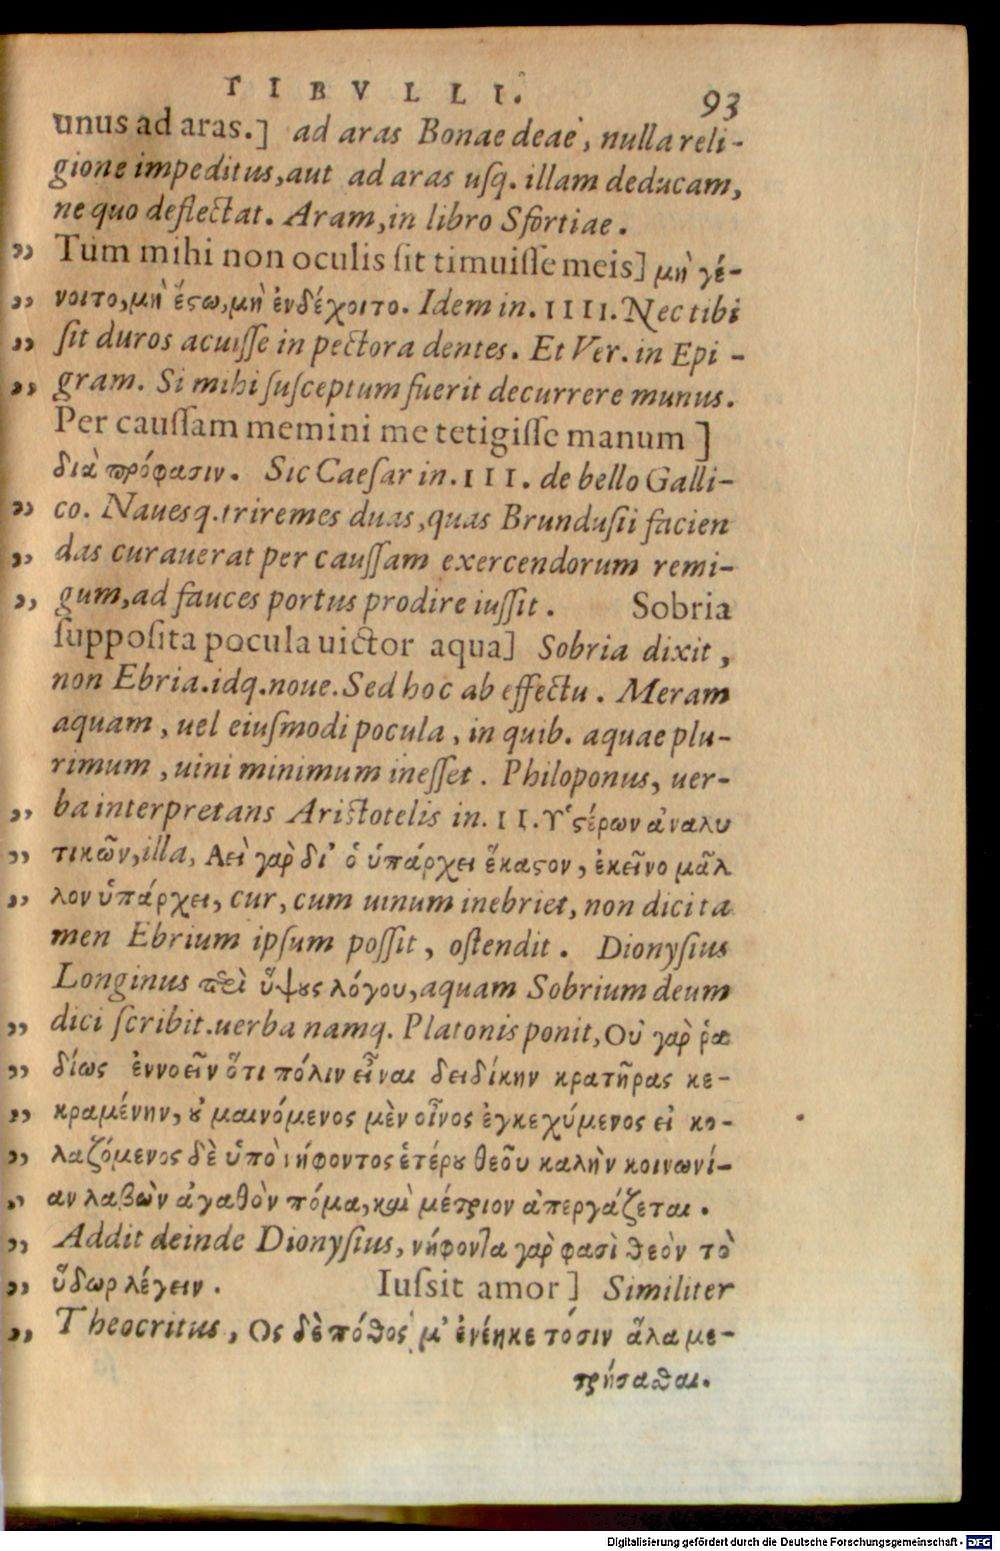 TIBVLLI.
93
unus ad aras.] ad aras Bonae deae, nulla reli-
gione impeditus, aut ad aras uſq. illam deducam,
ne quo deflectat. Aram, in libro Sfortiae.
„ Tum mihi non oculis ſit timuiſſe meis] μὴ γέ-
„ νοιτο, μὴ ἔϛω, μὴ ἐνδέχοιτο. Idem in. IIII. Nec tibi
„ ſit duros acuiſſe in pectora dentes. Et Ver. in Epi-
„ gram. Si mihi ſuſceptum fuerit decurrere munus.
Per cauſſam memini me tetigiſſe manum]
διὰ πρόφασιν. Sic Caeſar in. III. de bello Galli-
„ co. Naues q. triremes duas, quas Brunduſii facien
„ das curauerat per cauſſam exercendorum remi-
„ gum, ad fauces portus prodire iuſſit. Sobria
ſuppoſita pocula uictor aqua] Sobria dixit,
non Ebria. idq. noue. Sed hoc ab effectu. Meram
aquam, uel eiuſmodi pocula, in quib. aquae plu-
rimum, uini minimum ineſſet. Philoponus, uer-
„ ba interpretans Ariſtotelis in. II. Ὑϛέρων ἀναλυ
„ τικῶν, illa, Αεὶ γαρ̀ δι’ ὁ ὑπάρχει ἕκαϛον, ἐκεῖνο μᾶλ
„ λον ὑπάρχει, cur, cum uinum inebriet, non dici ta
men Ebrium ipſum poſſit, oſtendit. Dionyſius
Longinus περὶ ὕψȣς λόγου, aquam Sobrium deum
„ dici ſcribit. uerba namq. Platonis ponit, Οὐ γαρ̀ ῥα
„ δίως ἐννοεῖν ὅτι πόλιν εἶναι δεῖ δίκην κρατῆρας κε-
„ κραμένην, ȣ̓ μαινόμενος μὲν οἶνος ἐγκεχύμενος εἰ κο-
„ λαζόμενος δὲ ὑπὸ νήφοντος ἑτέρȣ θεοῦ καλὴν κοινωνί-
„ αν λαβὼν ἀγαθὸν πόμα, καὶ μέτριον ἀπεργάζεται.
„ Addit deinde Dionyſius, νήφοντα γαρ̀ φασὶ θεὸν τὸ
„ ὕδωρ λέγειν. Iuſsit amor] Similiter
„ Theocritus, Ος δὲ πόθος μ’ ἐνέηκε τόσιν ἅλα με-
τρήσαϑαι.
Digitalisierung gefördert durch die Deutsche Forschungsgemeinschaft - DFG